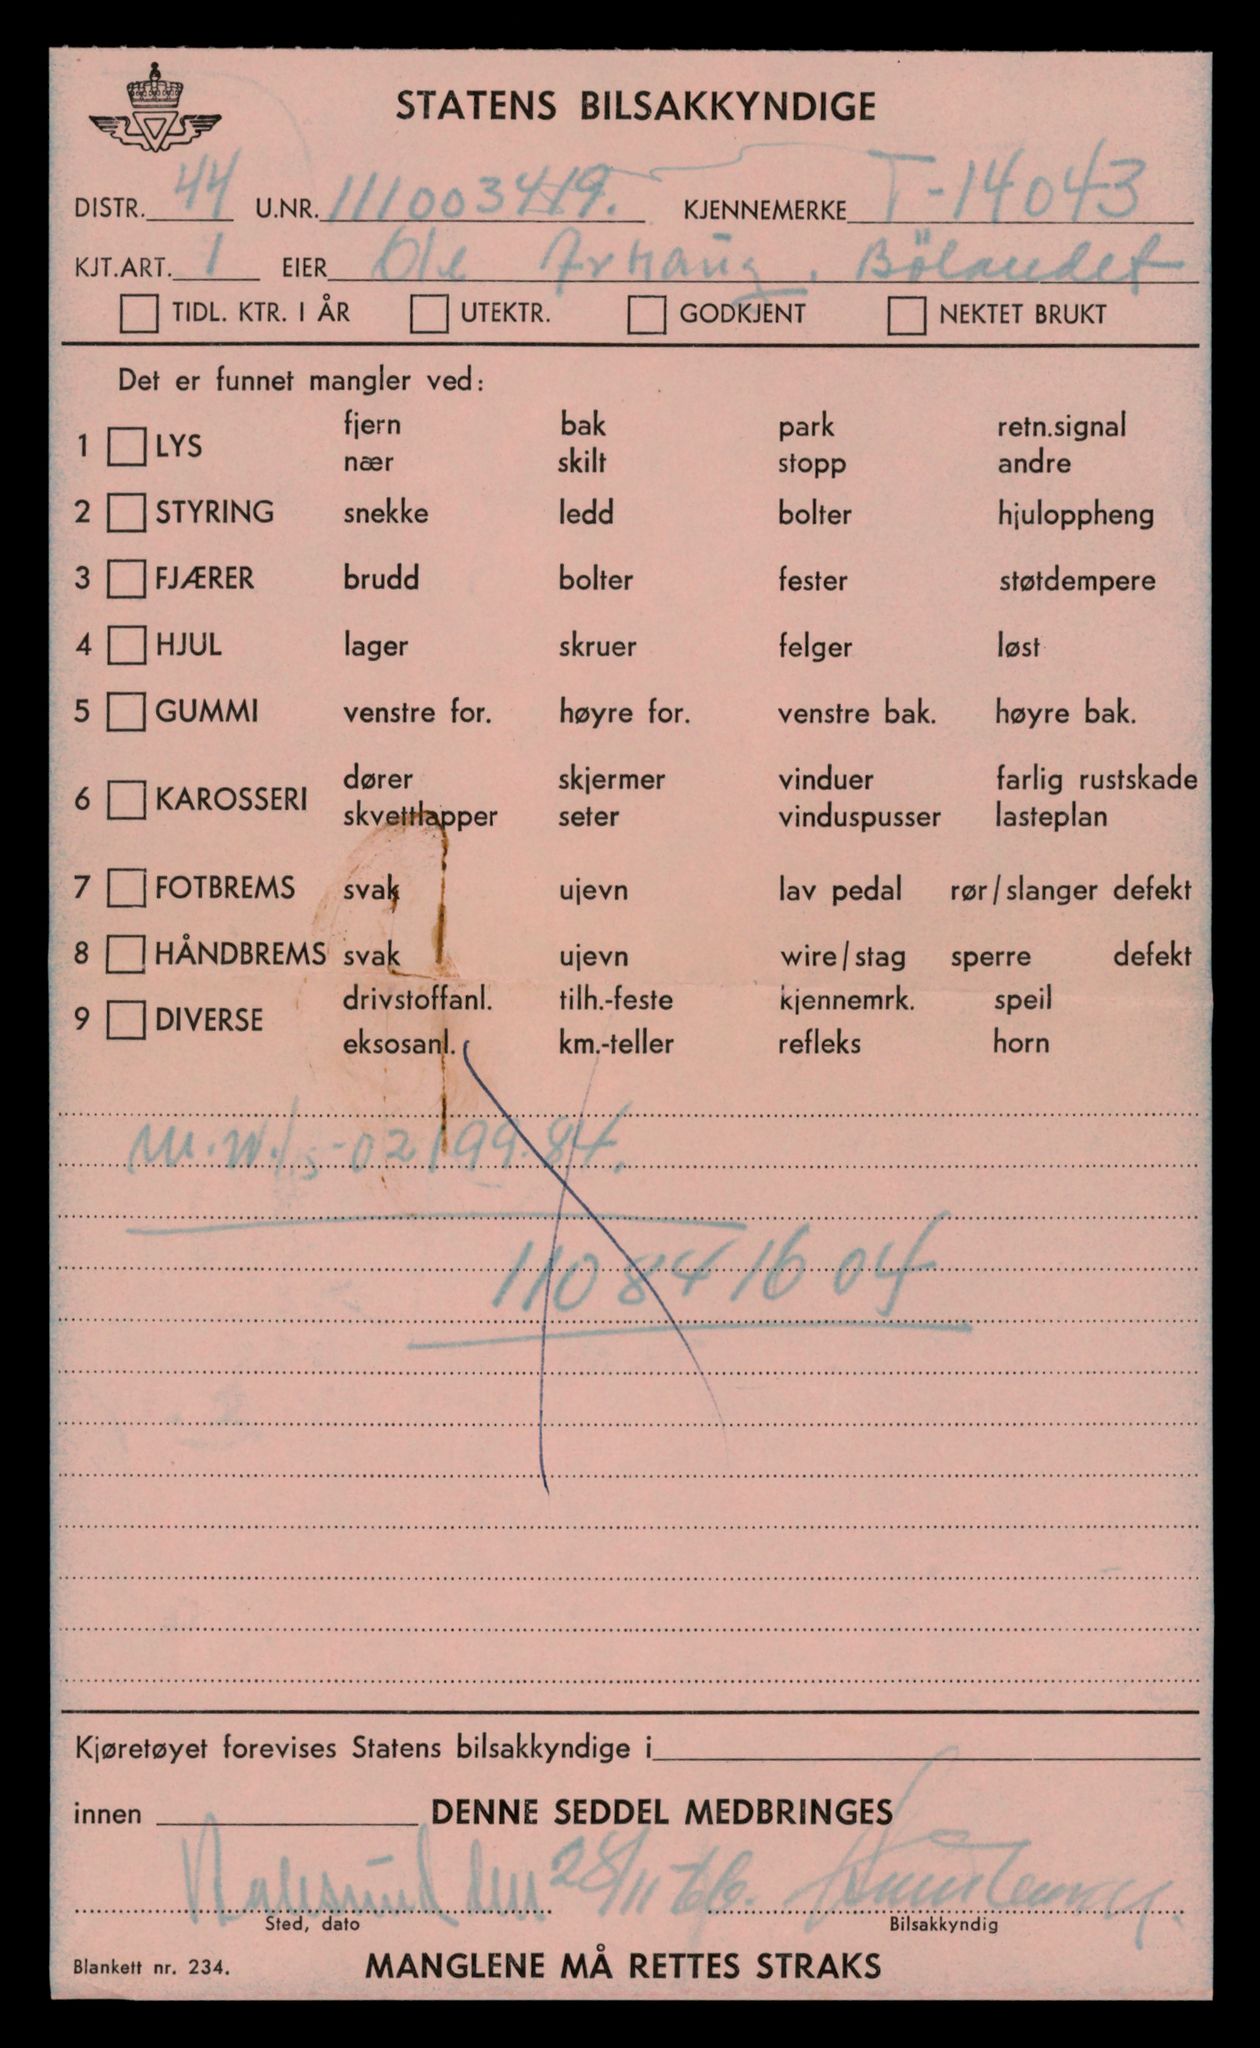 STATENS BILSAKKYNDIGE
DISTR. 44 U.NR. 111003419. KJENNEMERKE T-14043
KJT.ART. 1 EIER Ole Arhaug, Bölandet
TIDL. KTR. I ÅR UTEKTR. GODKJENT NEKTET BRUKT
Det er funnet mangler ved:
fjern bak park retn.signal
1 LYS
nær skilt stopp andre
2 STYRING snekke ledd bolter hjuloppheng
3 FJÆRER brudd bolter fester støtdempere
4 HJUL lager skruer felger løst
5 GUMMI venstre for. høyre for. venstre bak. høyre bak.
dører skjermer vinduer farlig rustskade
6 KAROSSERI
skvettlapper seter vinduspusser lasteplan
7 FOTBREMS svak ujevn lav pedal rør/slanger defekt
8 HÅNDBREMS svak ujevn wire/stag sperre defekt
drivstoffanl. tilh.-feste kjennemrk. speil
9 DIVERSE
eksosanl. km.-teller refleks horn
02199.84.
110841604
Kjøretøyet forevises Statens bilsakkyndige i
innen DENNE SEDDEL MEDBRINGES
den 28/11 66.
Sted, dato Bilsakkyndig
Blankett nr. 234. MANGLENE MÅ RETTES STRAKS